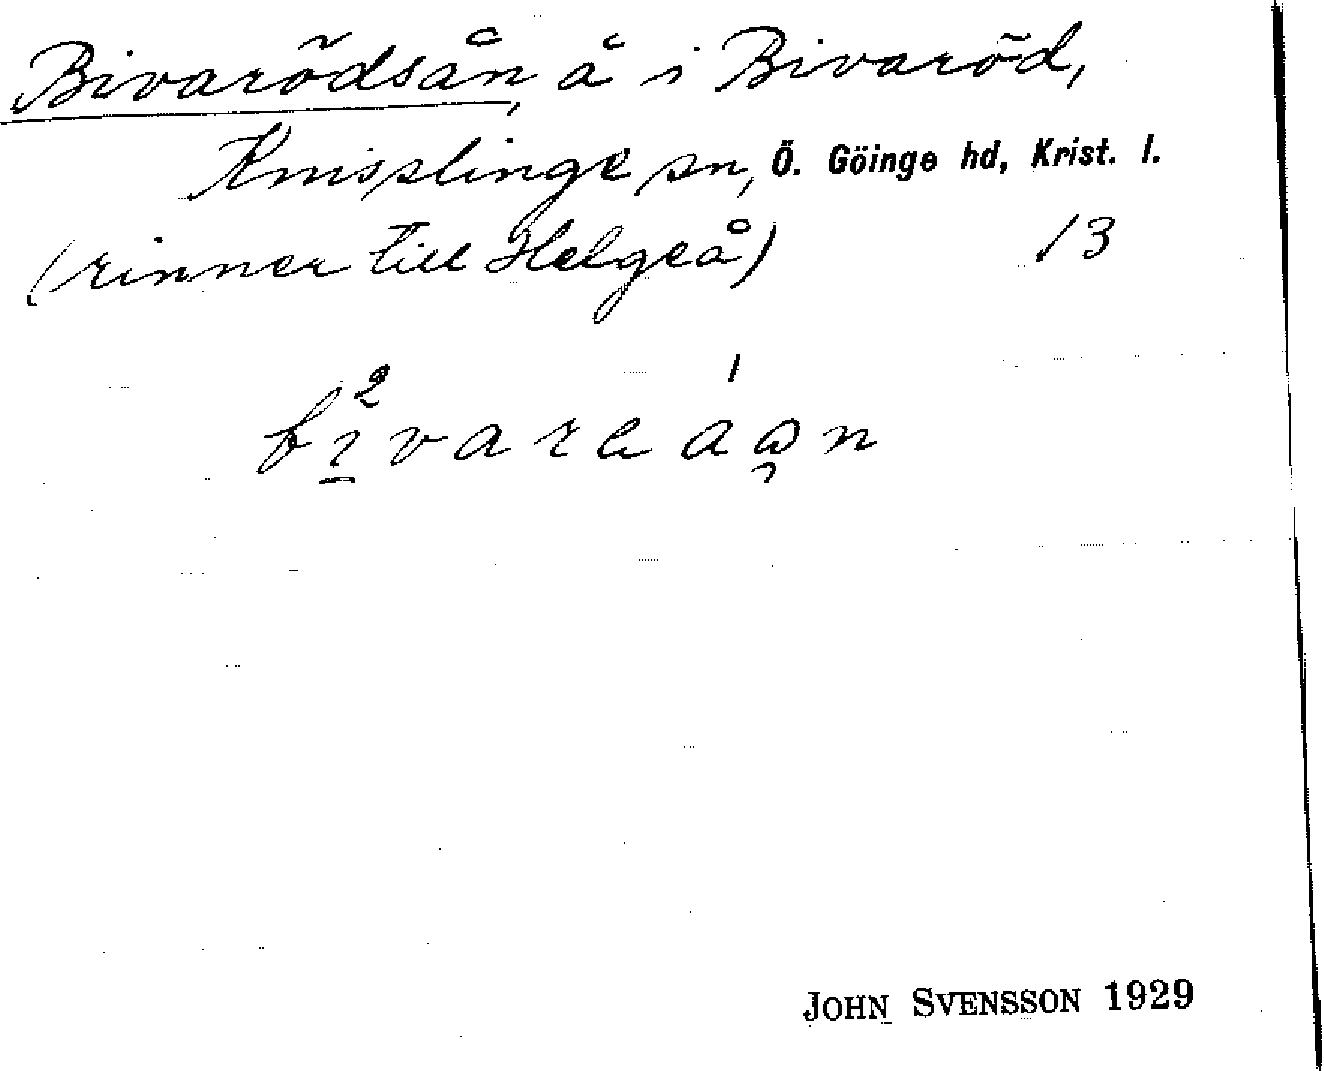 Bivarödsån, å i Bivaröd,
Knislinge sn, Ö. Göinge hd, Krist. l.
(rinner till Helgeå) 13
JOHN SVENSSON 1929